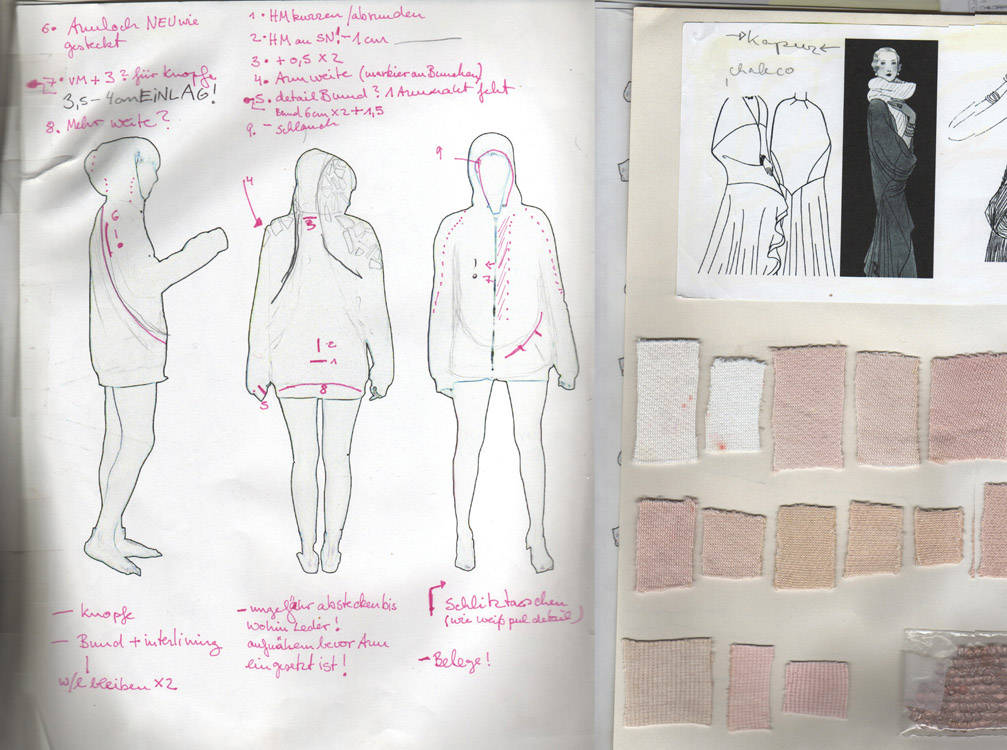 6. Armloch NEU wie
gesteckt
7. VM + 3? für Knöpfe
3,5 - 4 cm EINLAG!
8. Mehr weite?
1. HM kürzen / abrunden
2. HM an SN! - 1 cm
3. + 0,5 x 2
4. Armweite (markier an Bunsken)
5. detail Bund? 1 Armnaht fehlt
Bund 6cm x 2 + 1,5
9. - Schlauch
→ Kapuz ←
chaleco
9
4
6
1
3
7
2
1
8
5
- Knöpfe
- Bund + interlining
↓
w/l bleiben x2
- ungefähr abstecken bis
wohin Leder!
aufnähen bevor Arm
eingesetzt ist!
Schlitztaschen
(wie weiß pul detail)
- Belege!